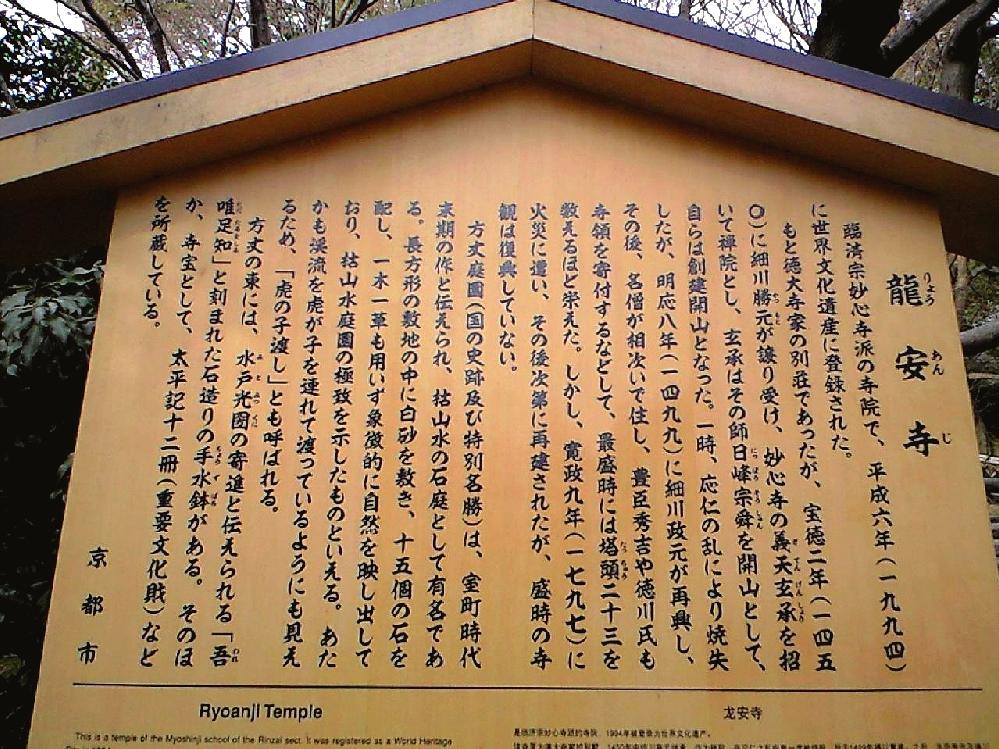 龍安寺
りょうあんじ
臨済宗妙心寺派の寺院で、平成六年(一九九四)
に世界文化遺産に登録された。
もと徳大寺家の別荘であったが、宝徳二年(一四五
〇)に細川勝元が譲り受け、妙心寺の義天玄承を招
いて禅院とし、玄承はその師日峰宗舜を開山として、
自らは創建開山となった。一時、応仁の乱により焼失
したが、明応八年(一四九九)に細川政元が再興し、
その後、名僧が相次いで住し、豊臣秀吉や徳川氏も
寺領を寄付するなどして、最盛時には塔頭二十三を
数えるほど栄えた。しかし、寛政九年(一七九七)に
火災に遭い、その後次第に再建されたが、盛時の寺
観は復興していない。
方丈庭園(国の史跡及び特別名勝)は、室町時代
末期の作と伝えられ、枯山水の石庭として有名であ
る。長方形の敷地の中に白砂を敷き、十五個の石を
配し、一木一草も用いず象徴的に自然を映し出して
おり、枯山水庭園の極致を示したものといえる。あた
かも渓流を虎が子を連れて渡っているようにも見え
るため、「虎の子渡し」とも呼ばれる。
方丈の東には、水戸光圀の寄進と伝えられる「吾
唯足知」と刻まれた石造りの手水鉢がある。そのほ
か、寺宝として、太平記十二冊(重要文化財)など
を所蔵している。
京都市
Ryoanji Temple
This is a temple of the Myoshinji school of the Rinzai sect. It was registered as a World Heritage
龙安寺
是临济宗妙心寺派的寺院。1994年被登录为世界文化遗产。